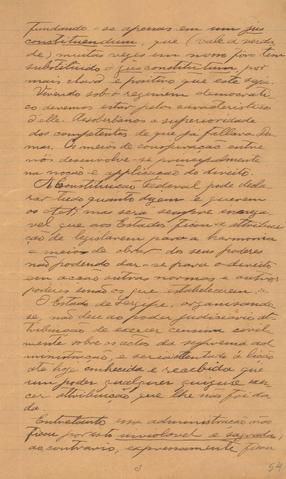 fundando-se apenas em um jus
constituendum, que (vale a verda
de) muitas vezes em nome foi tem
substituido o jus constitutum por
mais claro e positivo que este seja.
Vivendo sob o regimem democrati
co devemos estar pelas caracteristicas
d'elle. Assoberbanos a superioridade
dos competentes de que já fallava
Os meios de conspiração entre
nós desenvolve-se principalmente
na noção e applicação do direito.
A Constituição Federal pode decla
rar tudo quanto dizem e querem
os mas será sempre innega
vel que aos Estados ficou a attribui
ção de legislarem para a harmonia
e dos seus poderes
não podendo dar-se para o direito
em acção outras normas e outros
poderes senão os que estabelecerem.
O Estado de Sergipe, organisando-
se, não deu ao poder judiciario at-
tribuição de exercer censura
mente sobre os actos da suprema ad
ministração, e seria attentado á lição
até hoje conhecida e recebida que
um poder qualquer exer
cer attribuição que lhe não foi da
da.
Entretanto essa administração não
ficou por isto inviolavel e sagrada;
ao contrario, expressamente ficou
54